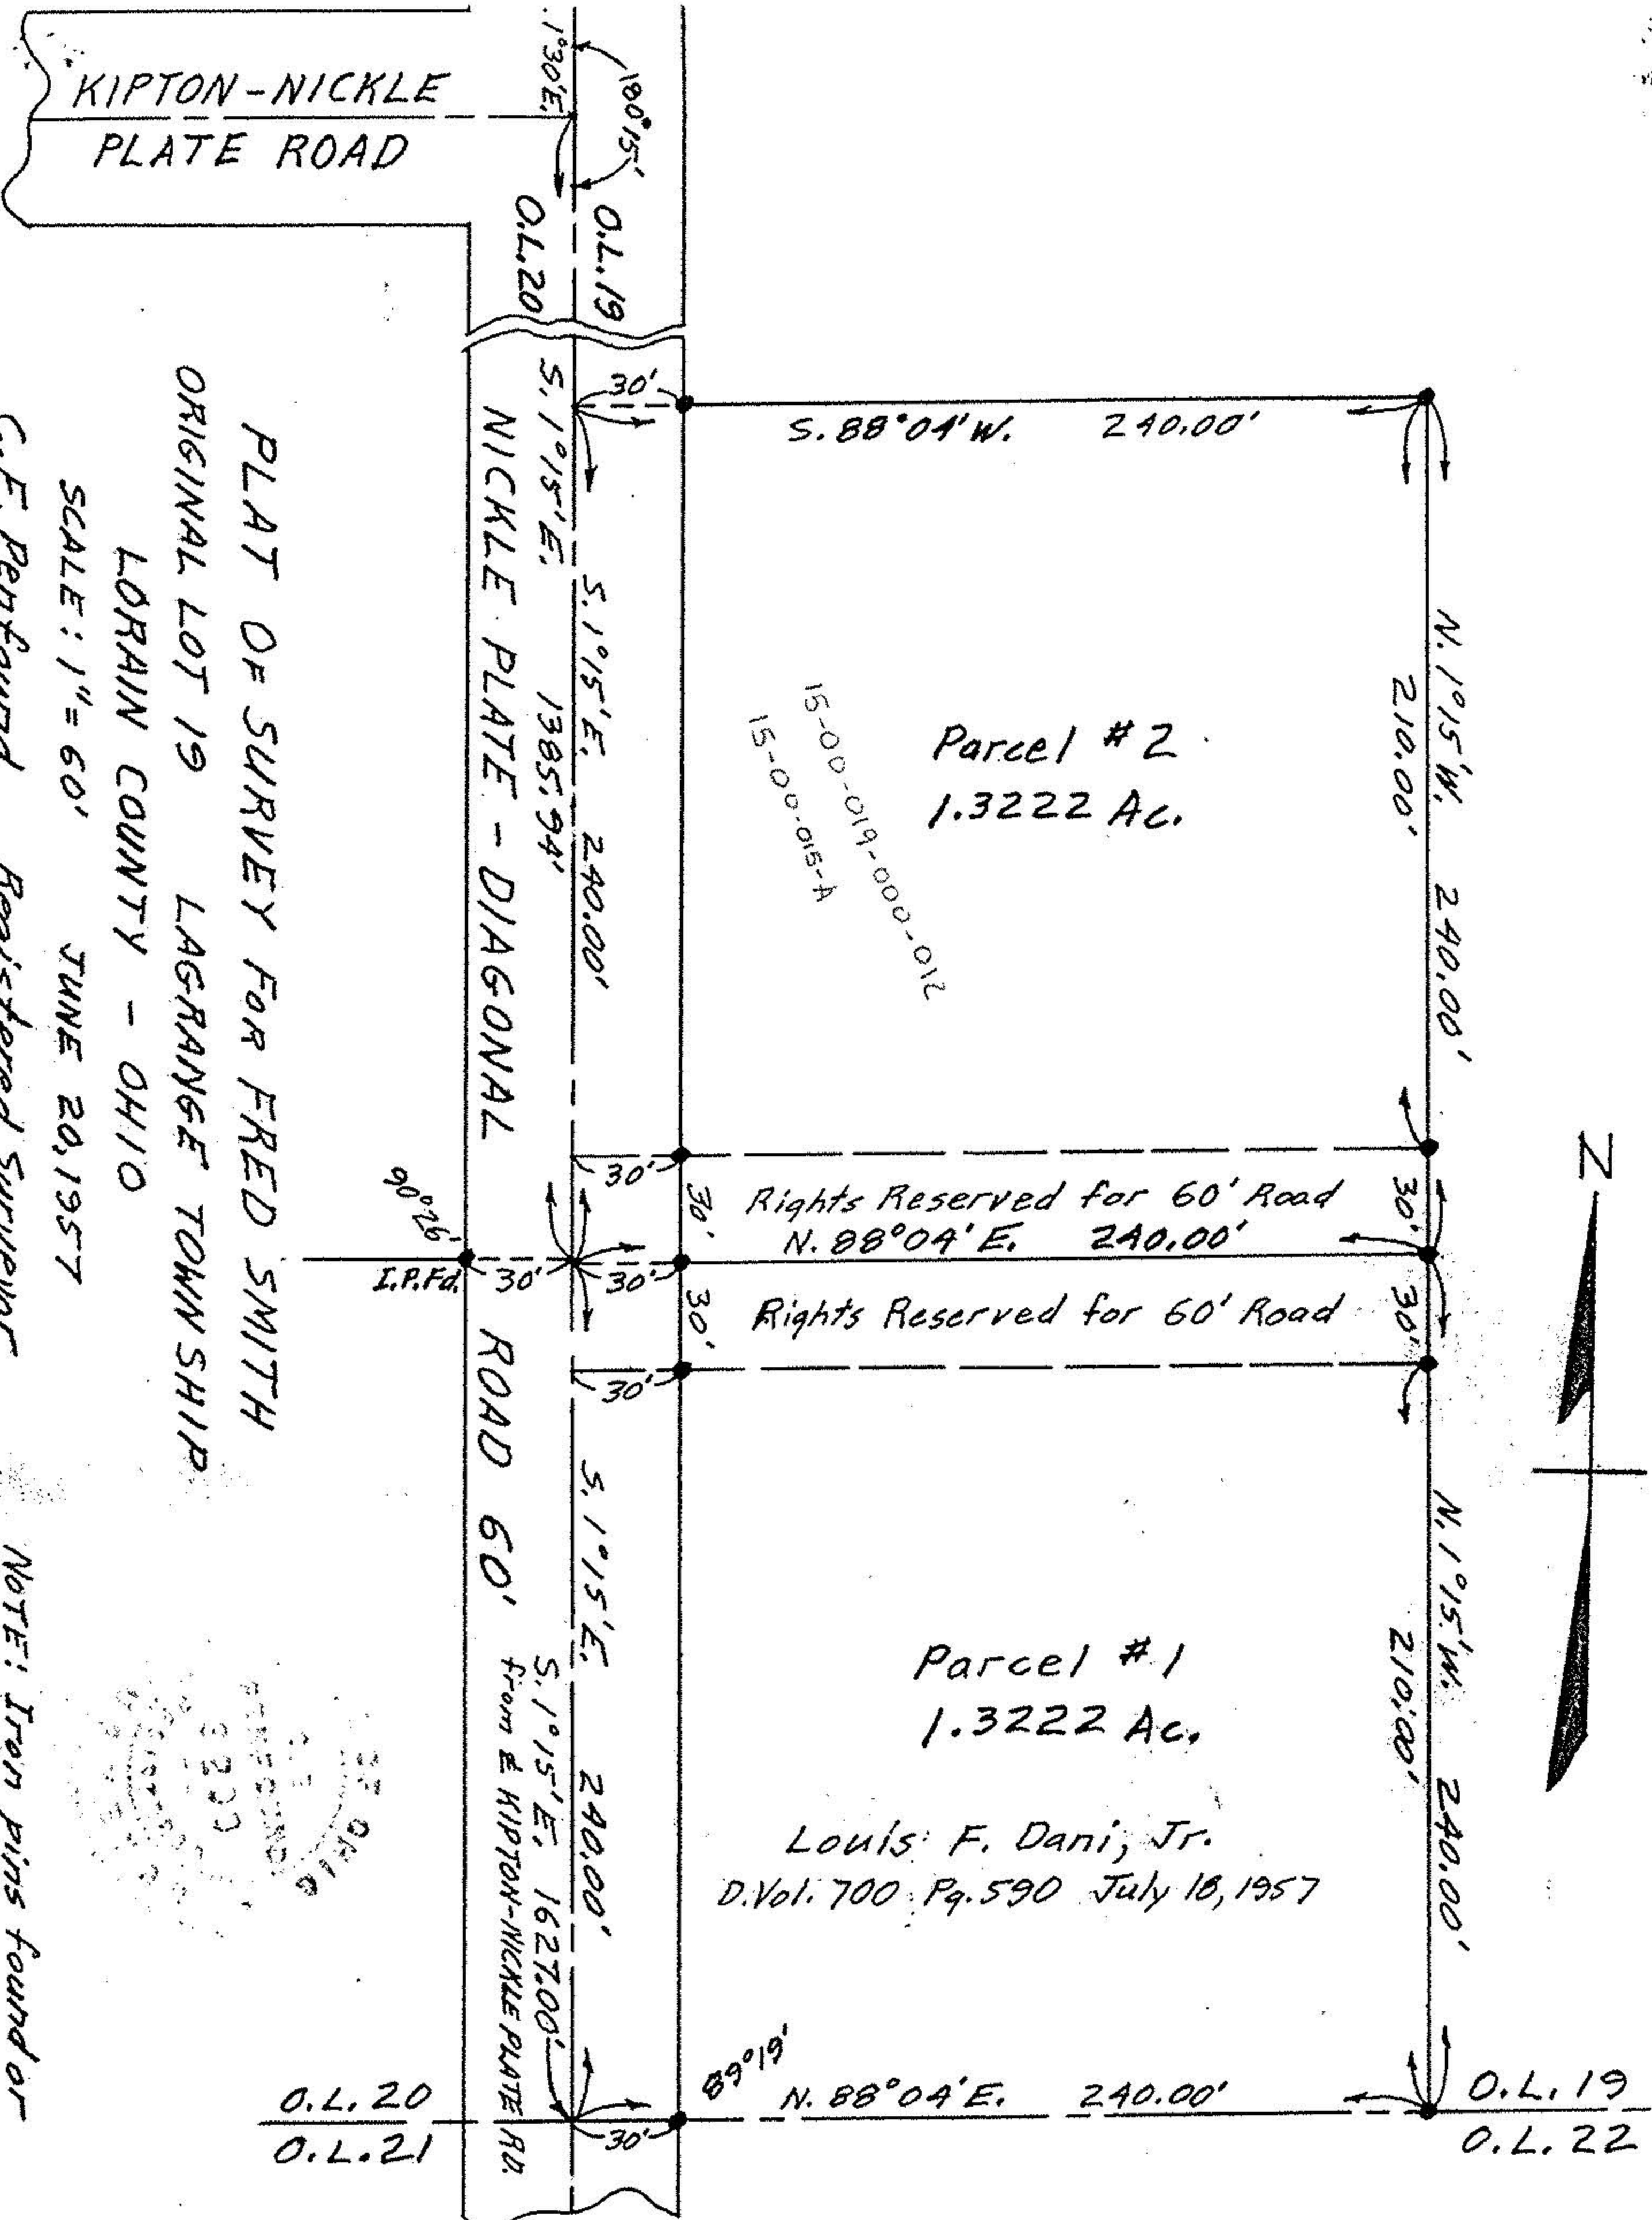 KIPTON-NICKLE
PLATE ROAD
1°30'E.
180°15'
O.L.19
O.L.20
30'
S. 88°04'W. 240.00'
S. 1°15'E. 1385.94'
S. 1°15'E. 240.00'
NICKLE PLATE - DIAGONAL ROAD 60'
N. 1°15'W. 240.00'
210.00'
Parcel #2
1.3222 Ac.
15-00-019-000-012
15-00-015-A
N
30'
30'
30'
Rights Reserved for 60' Road
N. 88°04'E. 240.00'
90°26'
I.P.Fd.
30'
30'
30'
30'
Rights Reserved for 60' Road
30'
S. 1°15'E. 240.00'
S. 1°15'E. 1627.00'
from ℄ KIPTON-NICKLE PLATE RD.
N. 1°15'W. 240.00'
210.00'
Parcel #1
1.3222 Ac.
Louis F. Dani, Jr.
D.Vol. 700 Pg. 590 July 18, 1957
89°19'
N. 88°04'E. 240.00'
30'
O.L. 20
O.L. 21
O.L. 19
O.L. 22
PLAT OF SURVEY FOR FRED SMITH
ORIGINAL LOT 19 LAGRANGE TOWNSHIP
LORAIN COUNTY - OHIO
SCALE: 1" = 60' JUNE 20, 1957
C.E. Penfound Registered Surveyor
NOTE: Iron pins found or